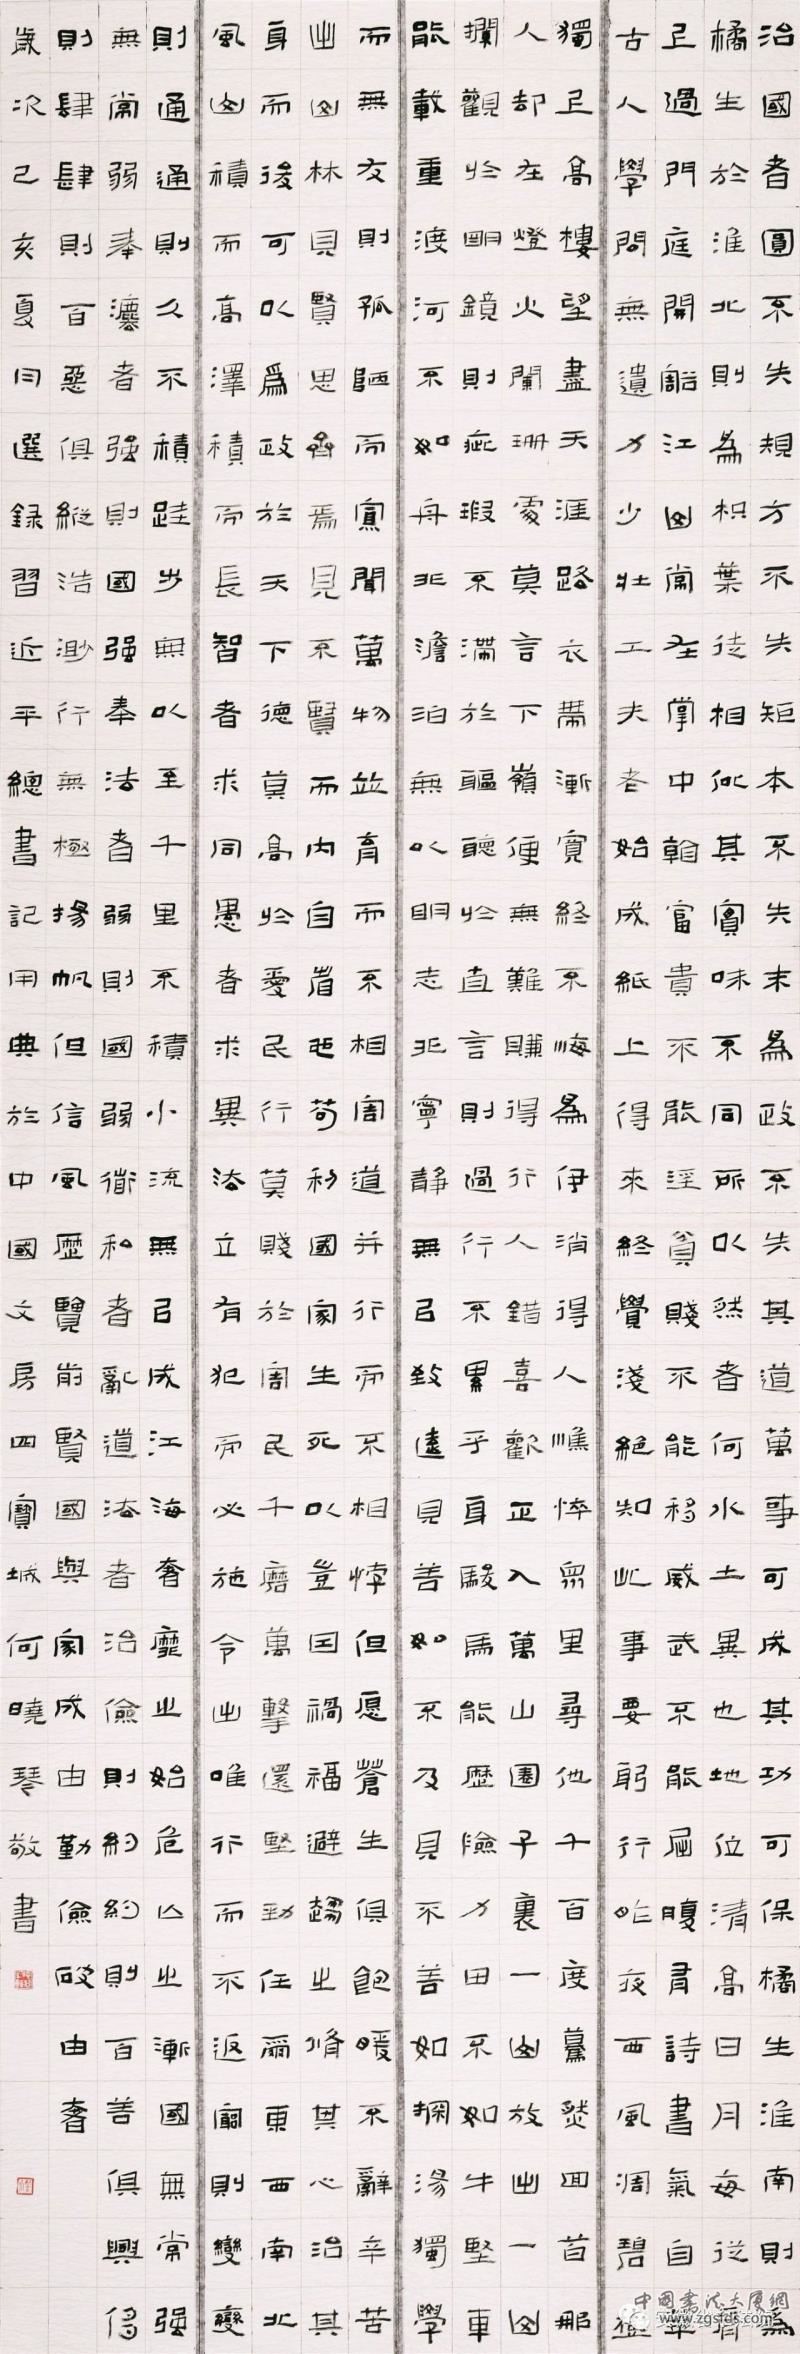 治國者圓不失規方不失矩本不失末為政不失其道萬事可成其功可保橘生淮南則為
橘生於淮北則為枳葉徒相似其實味不同所以然者何水土異也地位清高日月每從肩
上過門庭開豁江山常在掌中翰富貴不能淫貧賤不能移威武不能屈腹有詩書氣自華
古人學問無遺力少壯工夫老始成紙上得來終覺淺絕知此事要躬行昨夜西風凋碧樹
獨上高樓望盡天涯路衣帶漸寬終不悔為伊消得人憔悴眾里尋他千百度驀然回首那
人却在燈火闌珊處莫言下嶺便無難賺得行人錯喜歡正入萬山圈子裏一山放出一山
攔觀於明鏡則疵瑕不滯於軀聽於直言則過行不累乎身駿馬能歷險力田不如牛堅車
能載重渡河不如舟非澹泊無以明志非寧靜無以致遠見善如不及見不善如探湯獨學
而無友則孤陋而寡聞萬物並育而不相害道并行而不相悖但愿蒼生俱飽暖不辭辛苦
出山林見賢思齊焉見不賢而內自省也苟利國家生死以豈因禍福避趨之脩其心治其
身而後可以為政於天下德莫高於愛民行莫賤於害民千磨萬擊還堅勁任爾東西南北
風山積而高澤積而長智者求同愚者求異法立有犯而必施令出唯行而不返窮則變變
則通通則久不積跬步無以至千里不積小流無以成江海奢靡之始危亡之漸國無常强
無常弱奉灋者强則國强奉法者弱則國弱衛私者亂道法者治儉則約約則百善俱興侈
則肆肆則百惡俱縱浩渺行無極揚帆但信風歷覽前賢國與家成由勤儉破由奢
歲次己亥夏月選録習近平總書記用典於中國文房四寶城何曉琴敬書
中国書法大厦網
www.zgsfds.com